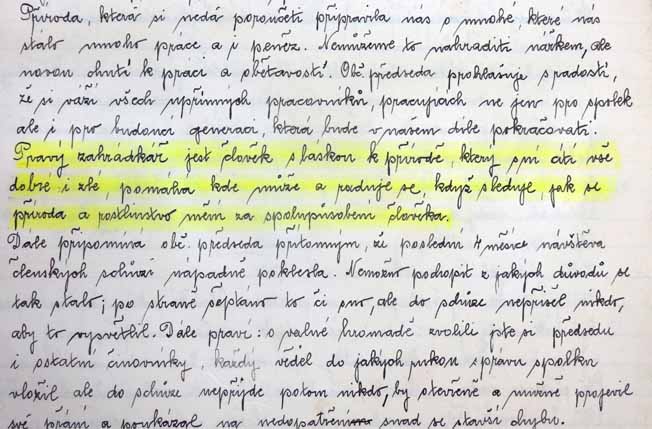 Příroda, která si nedá poroučeti připravila nás o mnohé, které nás
stálo mnoho práce a i peněz. Nemůžeme to nahraditi nářkem, ale
novou chutí k práci a obětavostí. Obč. předseda prohlašuje s radostí,
že si váží všech upřímných pracovníků, pracujících ne jen pro spolek
ale i pro budoucí generaci, která bude v našem díle pokračovati.
Pravý zahrádkář jest člověk s láskou k přírodě, který s ní cítí vše
dobré i zlé, pomáhá kde může a raduje se, když sleduje, jak se
příroda a rostlinstvo mění za spolupůsobení člověka.
Dále připomíná obč. předseda přítomným, že poslední 4 měsíce návštěva
členských schůzí nápadně poklesla. Nemožno pochopit z jakých důvodů se
tak stalo; po straně šeptáno to či ono, ale do schůze nepřišel nikdo,
aby to vysvětlil. Dále praví: o valné hromadě zvolili jste si předsedu
i ostatní činovníky, každý věděl do jakých rukou správu spolku
vložil ale do schůze nepřijde potom nikdo, by otevřeně a mužně projevil
své přání a poukázal na nedopatření snad se stavší chybu.